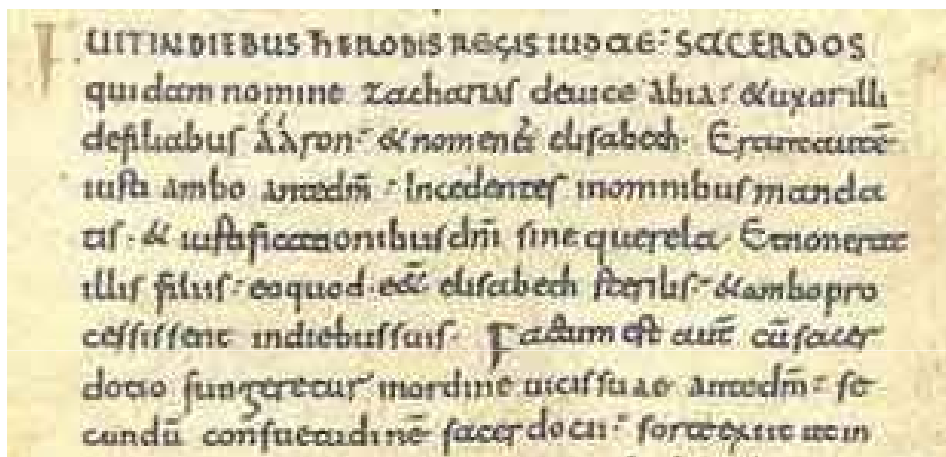 FUIT IN DIEBUS HERODIS REGIS IUDAE· SACERDOS
quidam nomine zacharias deuice abia· & uxor illi
defiliabus ááron· & nomen ei&#39; elisabeth· Erant autē
iusti ambo antedm̄· Incedentes inomnibus manda
tis· & iustificationibus dm̄i sine querela· Et non erat
illis filius· eoquod· eēt elisabeth sterilis· & ambo pro
cessissent indiebus suis· Factum est aut̄ cū sacer
dotio fungeretur inordine uicis suae antedm̄· se
cundū consuetudinē sacerdotii· sorte exiit ut in